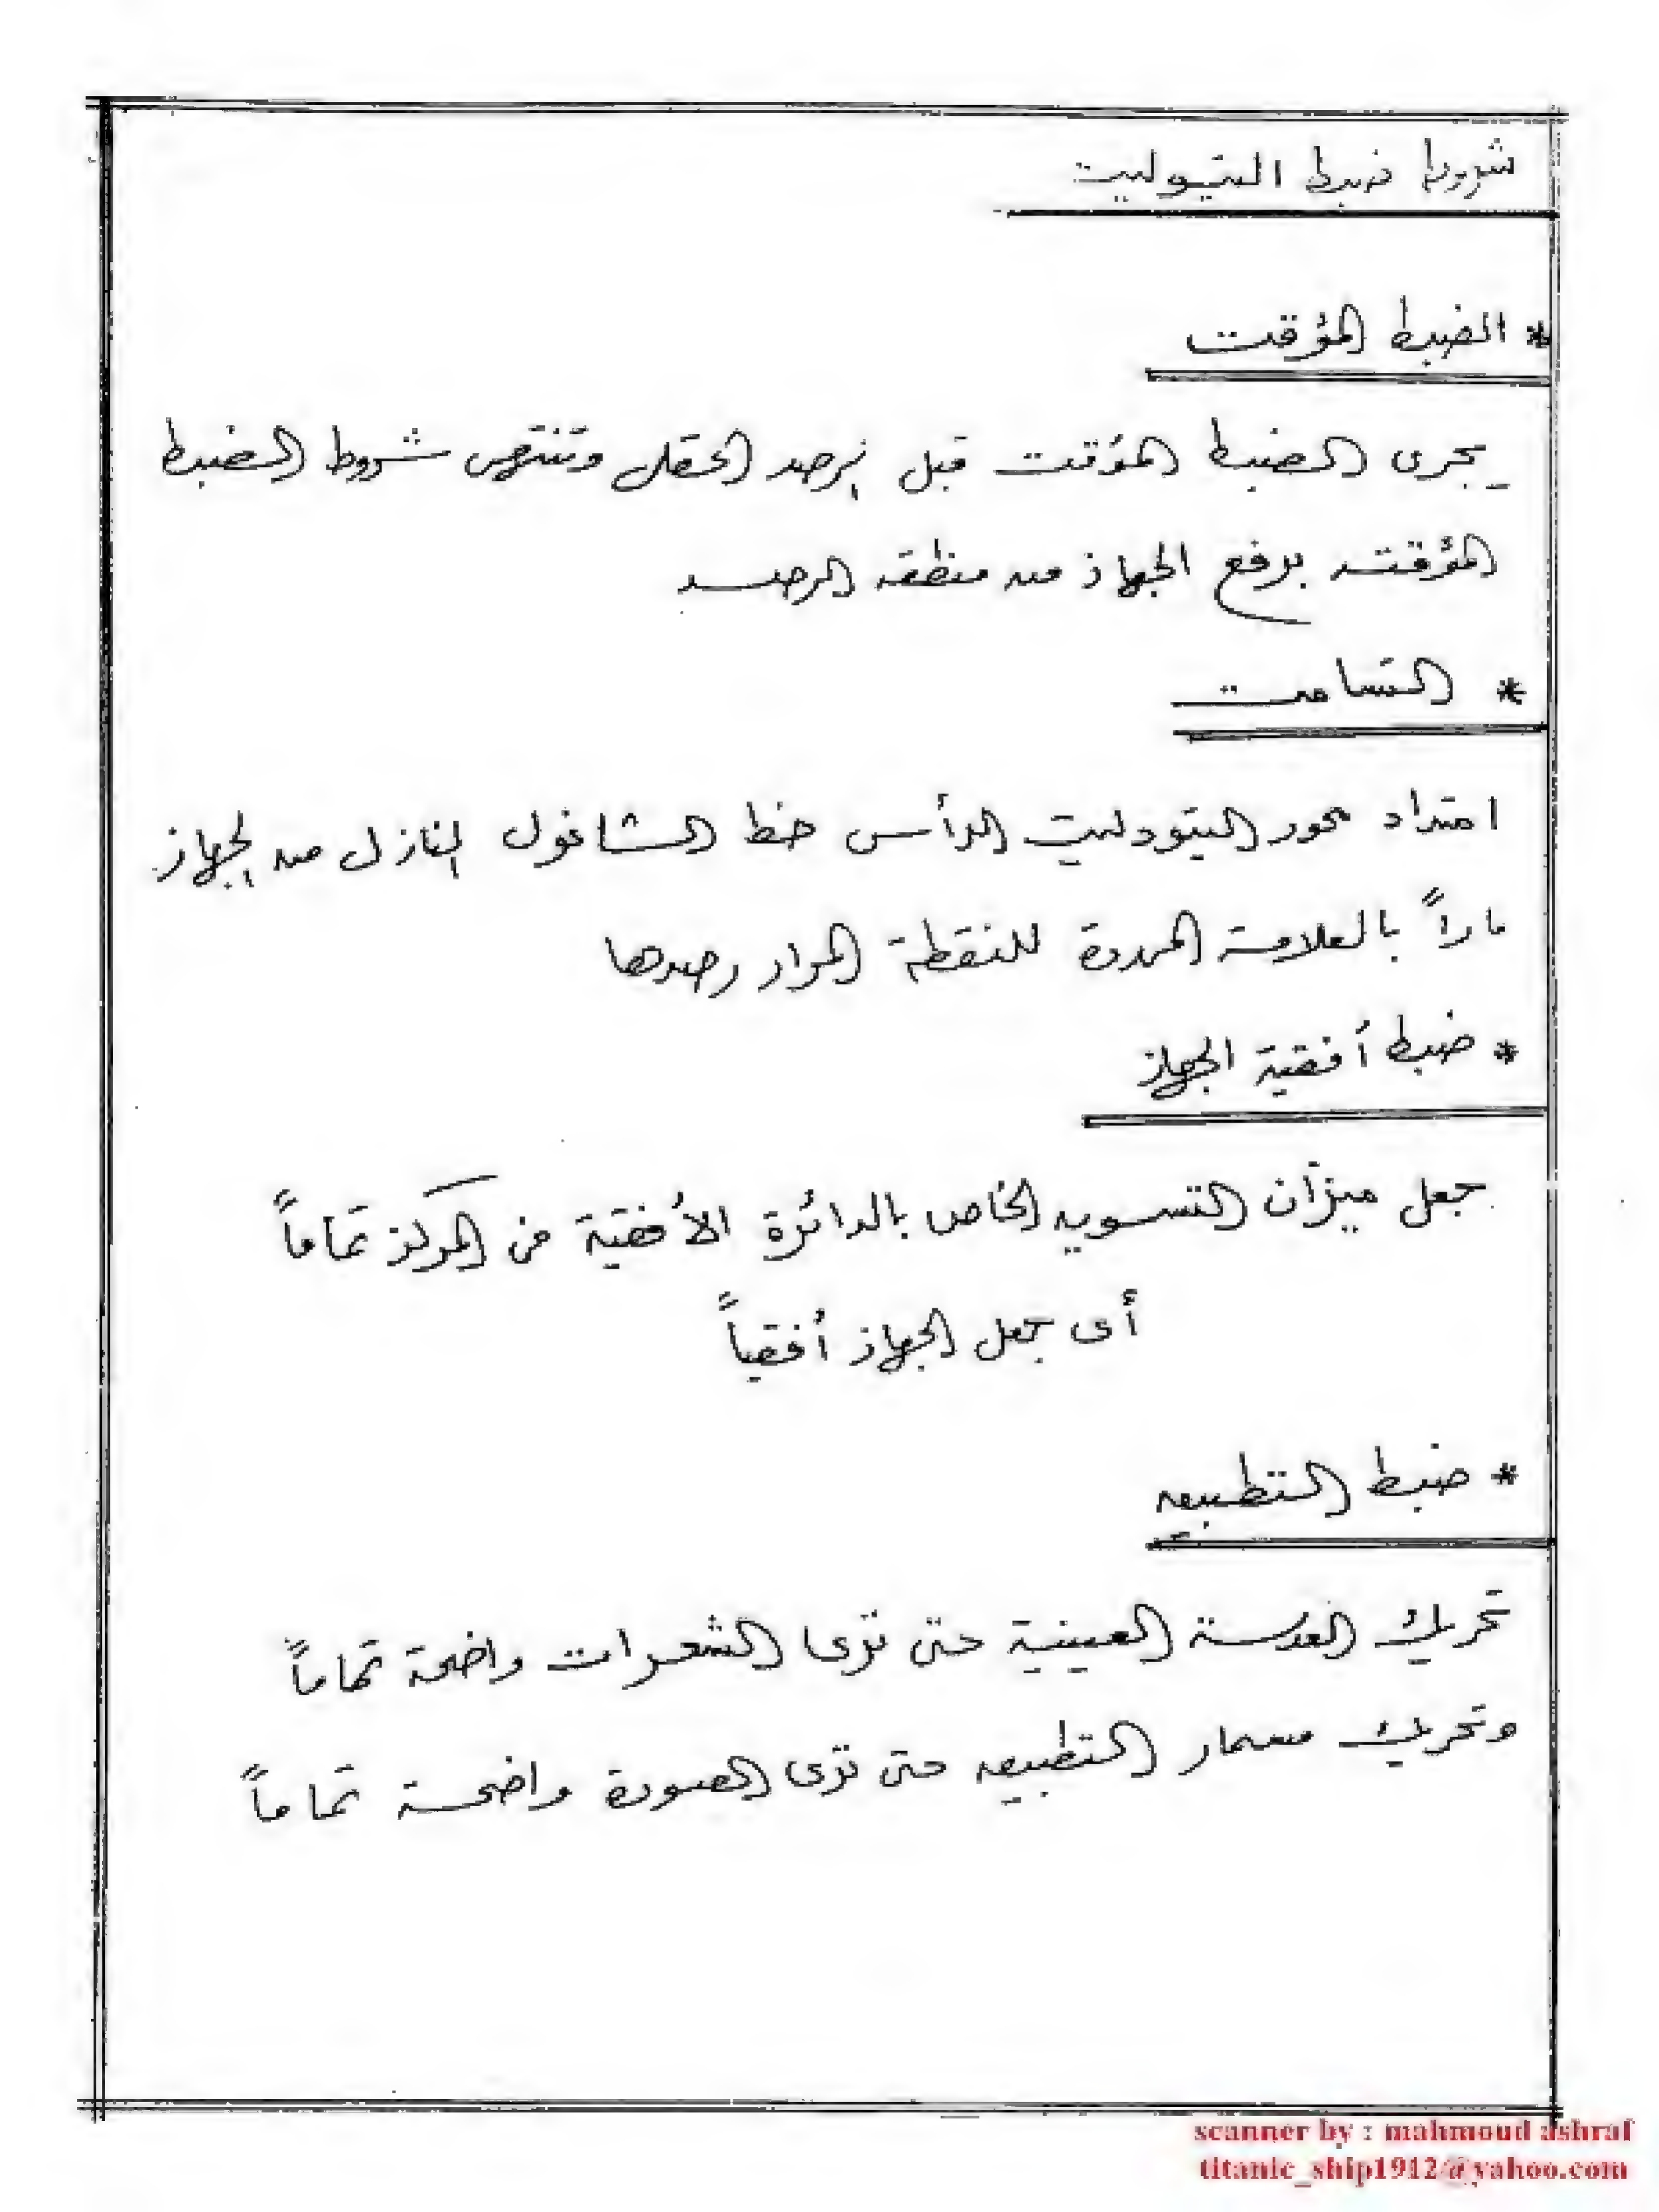 شروط ضبط التيوليت
* الضبط المؤقت
يجرى الضبط المؤقت قبل برصد الحقل وتنتهى شروط الضبط
المؤقت برفع الجهاز من منطقه الرصد
* التسامت
امتداد محور التيودليت الرأسى خط الشاغول النازل من الجهاز
ماراً بالعلامة المحددة للنقطة المراد رصدها
* ضبط أفقية الجهاز
جعل ميزان التسويه الخاص بالدائرة الأفقية فى المركز تماماً
أى جعل الجهاز أفقياً
* ضبط التطبيق
تحريك العدسة العينية حتى نرى الشعرات واضحة تماماً
وتحريك مسمار التطبيق حتى نرى الصورة واضحة تماماً
scanner by : mahmoud ashraf
titanic_ship1912@yahoo.com